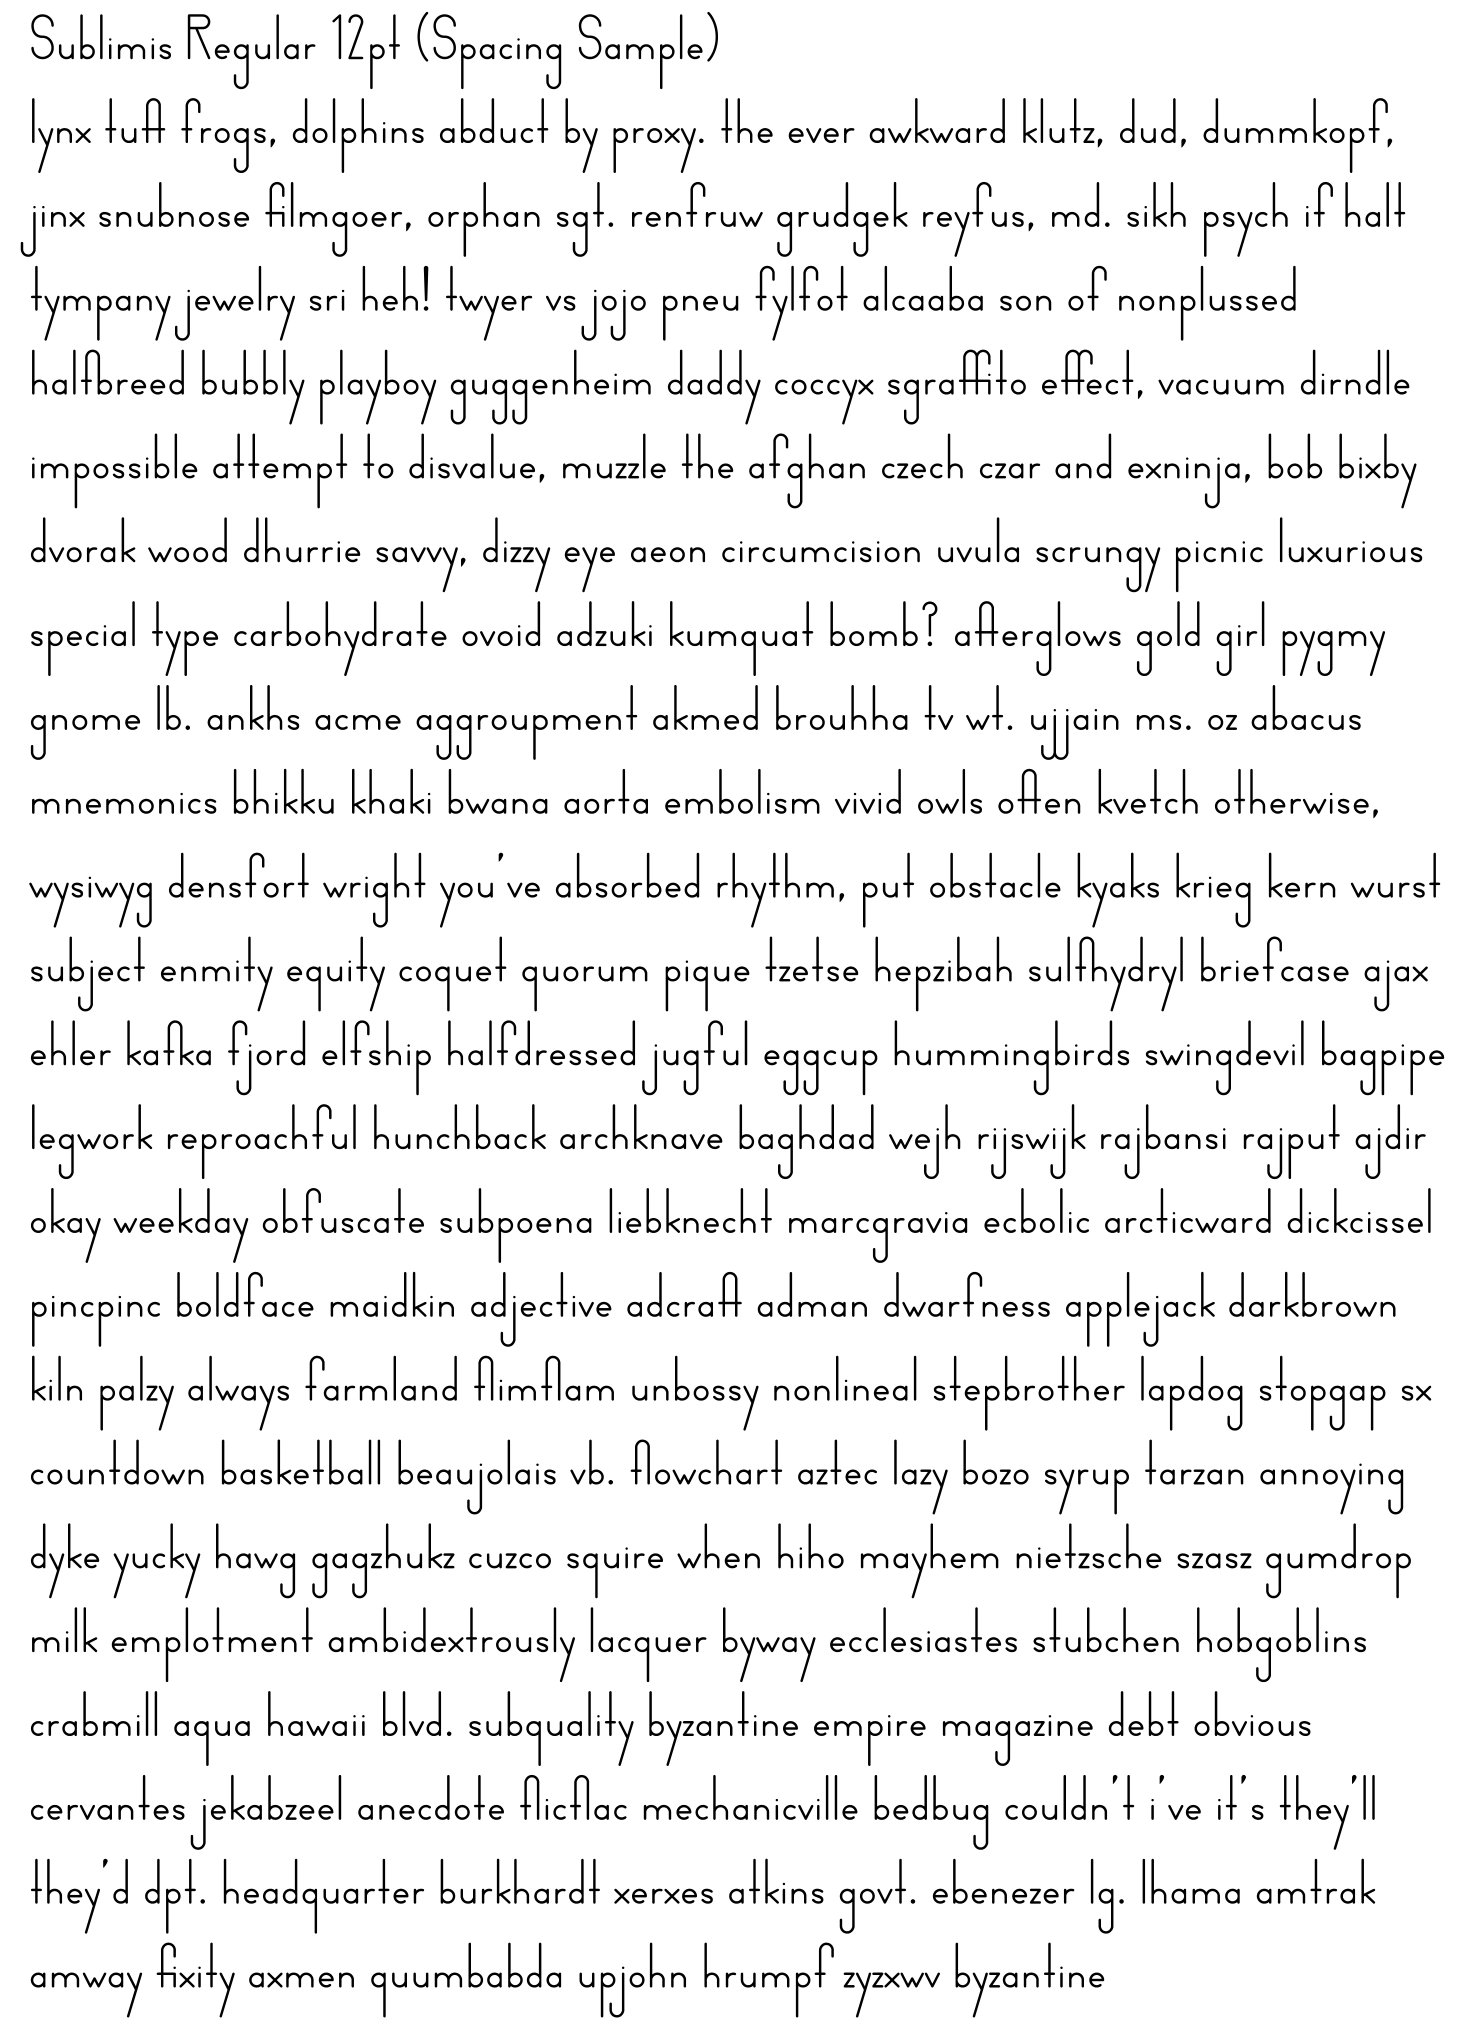 Sublimis Regular 12pt (Spacing Sample)
lynx tuft frogs, dolphins abduct by proxy. the ever awkward klutz, dud, dummkopf,
jinx snubnose filmgoer, orphan sgt. renfruw grudgek reyfus, md. sikh psych if halt
tympany jewelry sri heh! twyer vs jojo pneu fylfot alcaaba son of nonplussed
halfbreed bubbly playboy guggenheim daddy coccyx sgraffito effect, vacuum dirndle
impossible attempt to disvalue, muzzle the afghan czech czar and exninja, bob bixby
dvorak wood dhurrie savvy, dizzy eye aeon circumcision uvula scrungy picnic luxurious
special type carbohydrate ovoid adzuki kumquat bomb? afterglows gold girl pygmy
gnome lb. ankhs acme aggroupment akmed brouhha tv wt. ujjain ms. oz abacus
mnemonics bhikku khaki bwana aorta embolism vivid owls often kvetch otherwise,
wysiwyg densfort wright you've absorbed rhythm, put obstacle kyaks krieg kern wurst
subject enmity equity coquet quorum pique tzetse hepzibah sulfhydryl briefcase ajax
ehler kafka fjord elfship halfdressed jugful eggcup hummingbirds swingdevil bagpipe
legwork reproachful hunchback archknave baghdad wejh rijswijk rajbansi rajput ajdir
okay weekday obfuscate subpoena liebknecht marcgravia ecbolic arcticward dickcissel
pincpinc boldface maidkin adjective adcraft adman dwarfness applejack darkbrown
kiln palzy always farmland flimflam unbossy nonlineal stepbrother lapdog stopgap sx
countdown basketball beaujolais vb. flowchart aztec lazy bozo syrup tarzan annoying
dyke yucky hawg gagzhukz cuzco squire when hiho mayhem nietzsche szasz gumdrop
milk emplotment ambidextrously lacquer byway ecclesiastes stubchen hobgoblins
crabmill aqua hawaii blvd. subquality byzantine empire magazine debt obvious
cervantes jekabzeel anecdote flicflac mechanicville bedbug couldn't i've it's they'll
they'd dpt. headquarter burkhardt xerxes atkins govt. ebenezer lg. lhama amtrak
amway fixity axmen quumbabda upjohn hrumpf zyzxwv byzantine